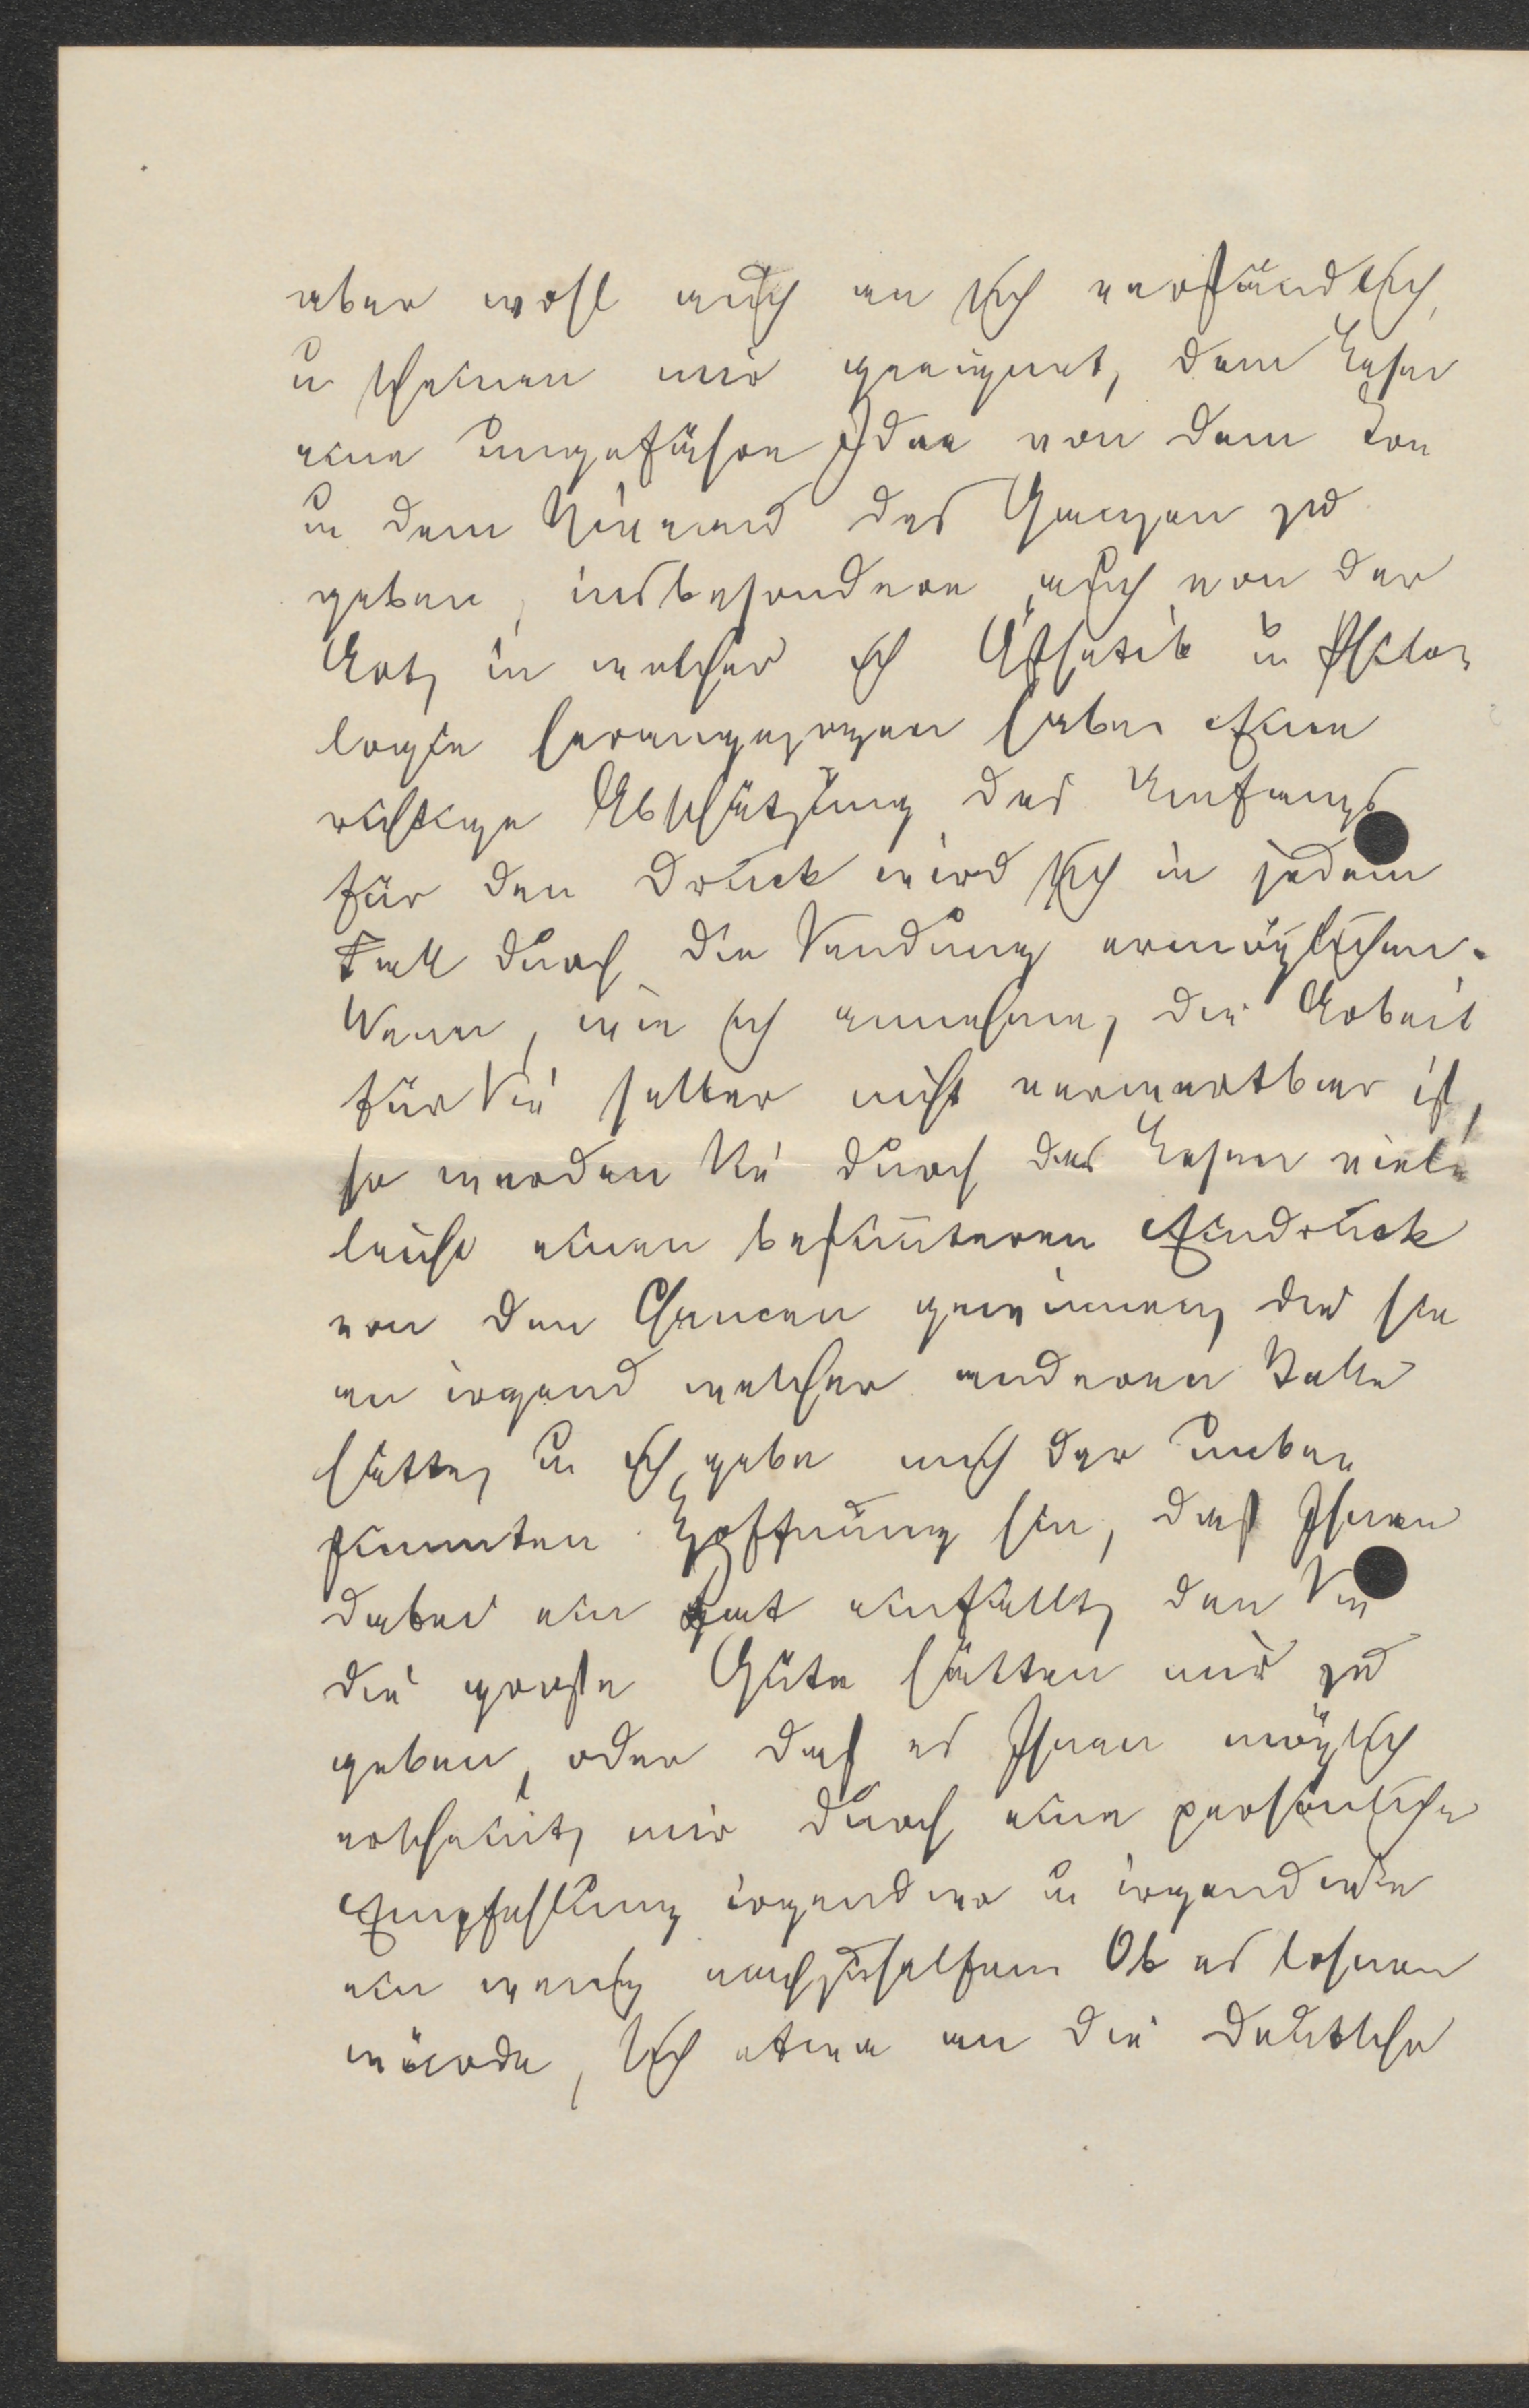 aber wohl auch an sich verständlich,
u scheinen mir geeignet, dem Leser
eine ungefähre Idee von dem Ton
u dem Niveau des Ganzen zu
geben, insbesondere auch von der
Art, in welcher ich Ästhetik u Philo-
logie herangezogen habe. Eine
richtige Abschätzung des Umfangs
für den Druck wird sich in jedem
Fall durch die Sendung ermöglichen.
Wenn, wie ich annehme, die Arbeit
für Sie selber nicht verwertbar ist,
so werden Sie durch das Lesen viel-
leicht einen bestimteren Eindruck
von den Chancen gewinnen, die sie
an irgend welcher anderen Stelle
hätte, u ich gebe mich der unbe-
stimmten Hoffnung hin, dass Ihnen
dabei ein Rat einfällt, den Sie
die grosse Güte hätten mir zu
geben, oder dass es Ihnen möglich
erscheint, mir durch eine persönliche
Empfehlung irgendwo u irgendwie
ein wenig nachzuhelfen. Ob es lohnen
würde, sich etwa an die Deutsche